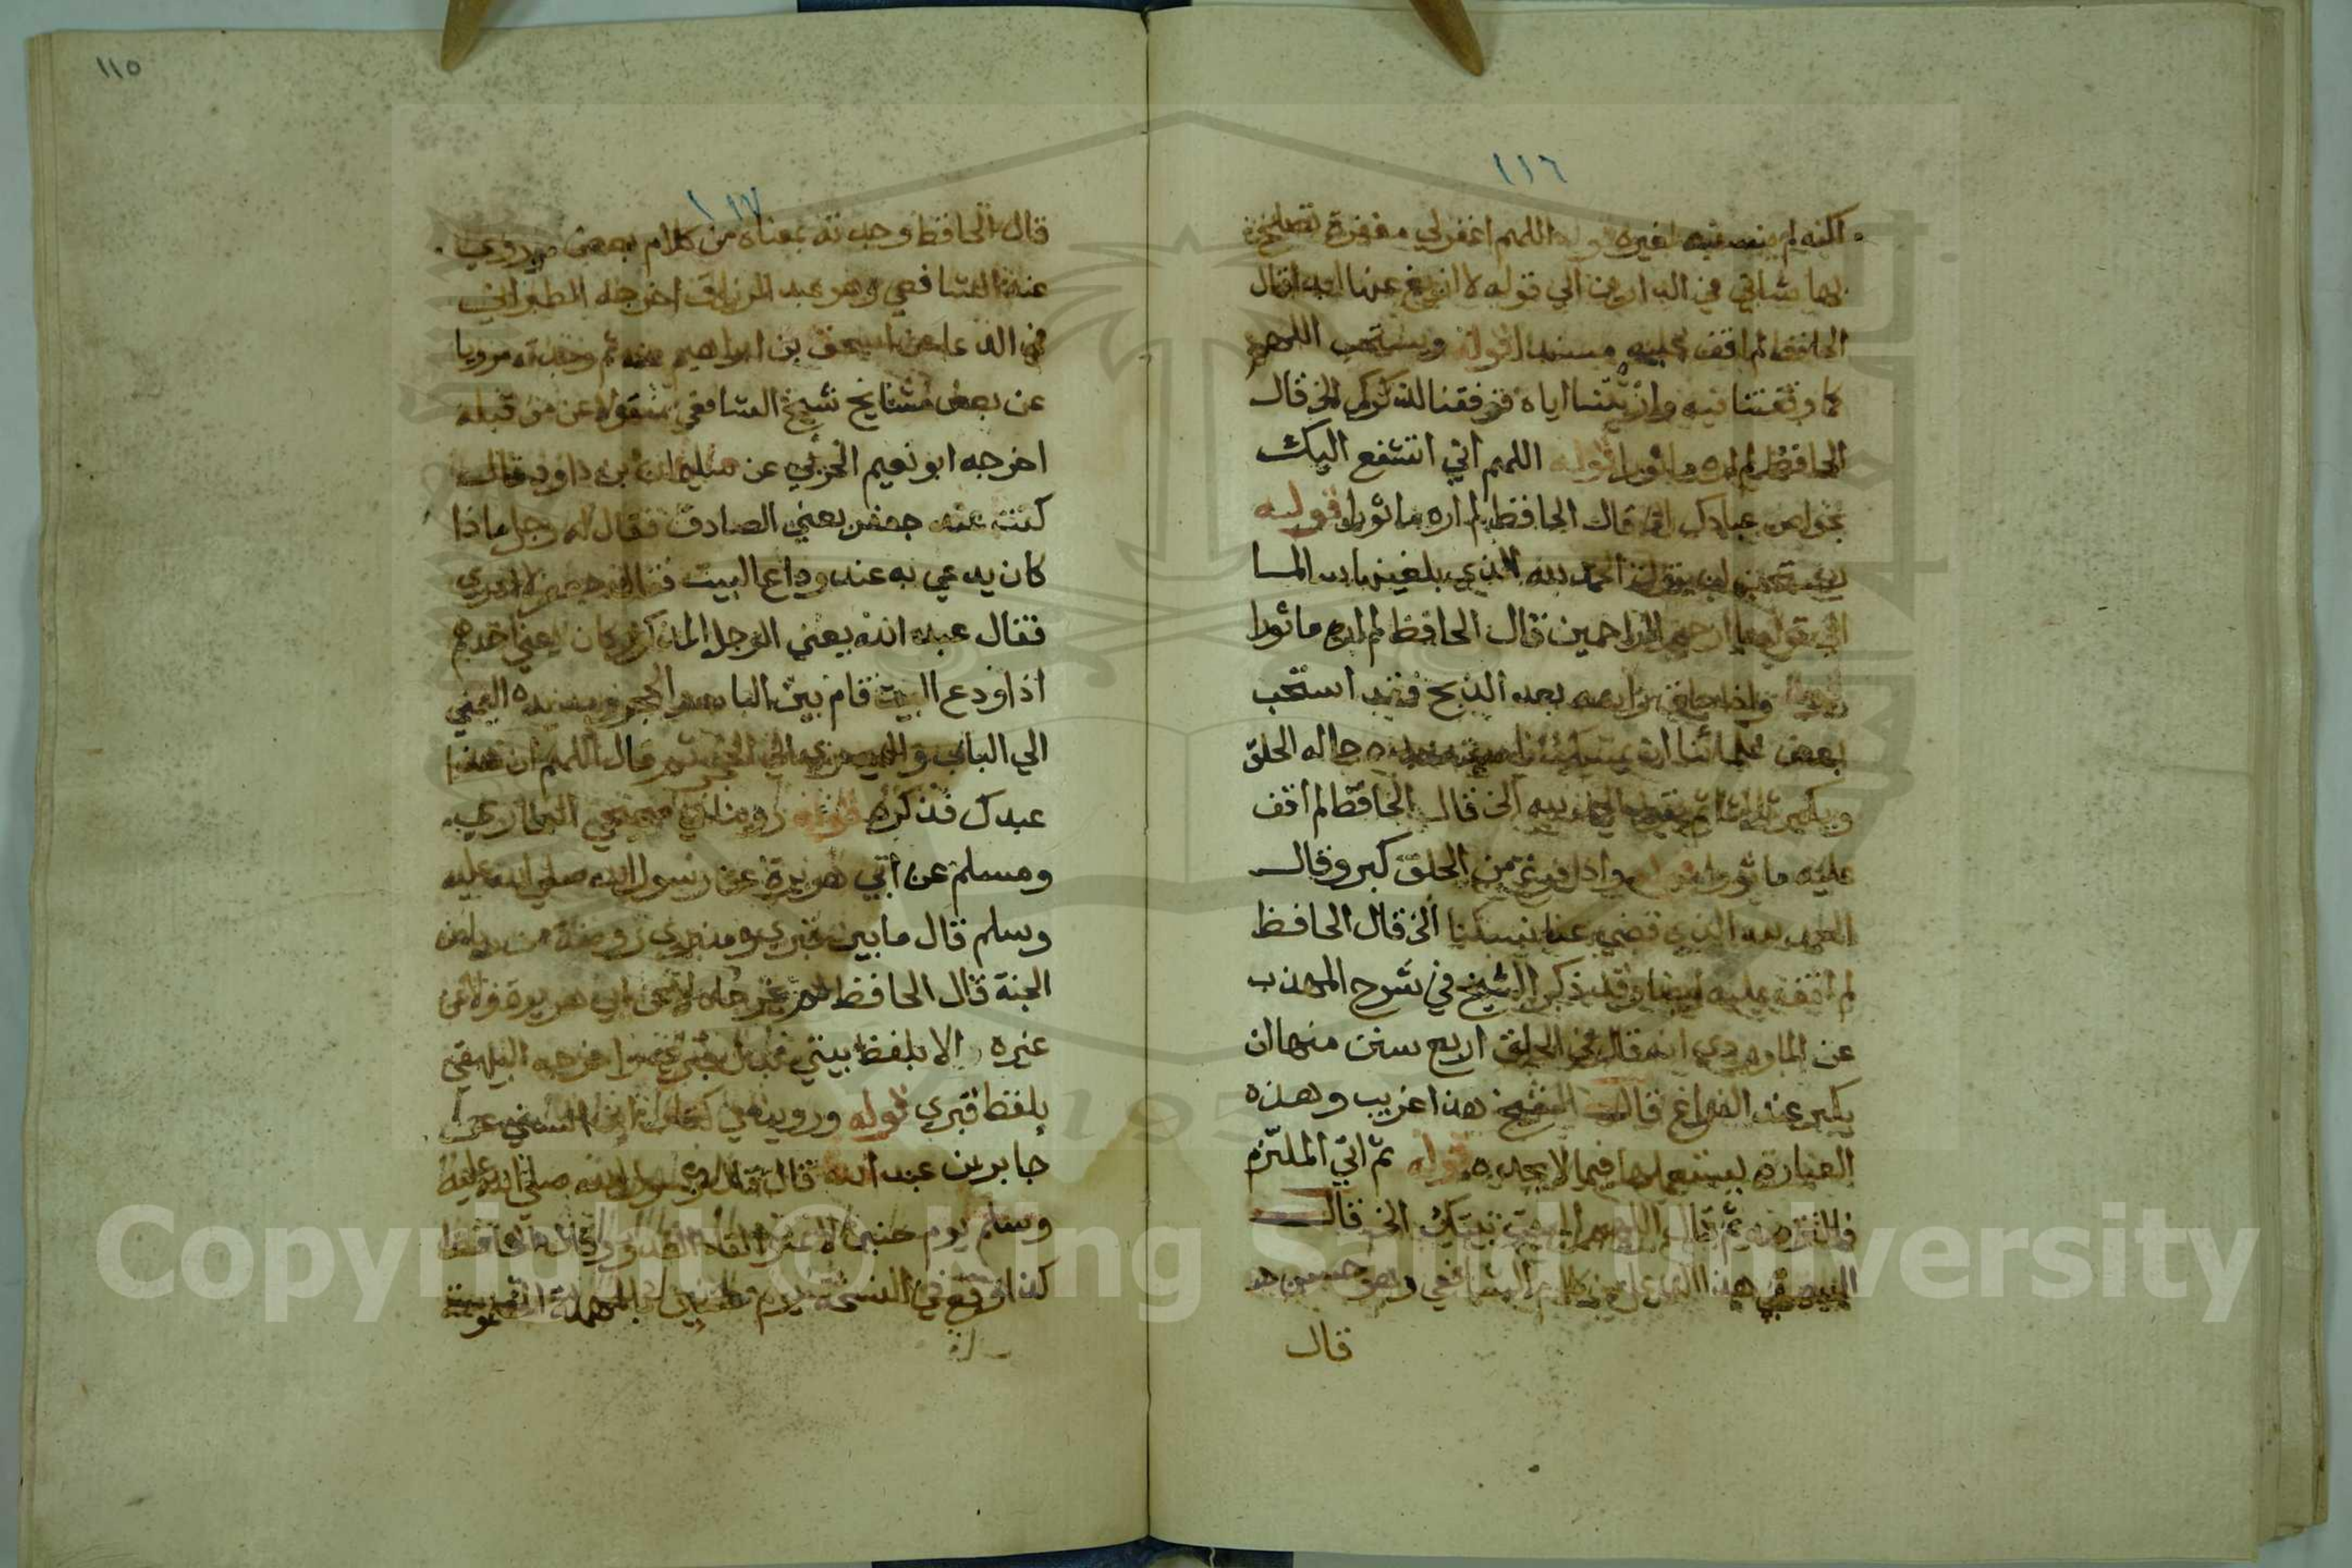 ١١٦
لكنه لم ينص فيه لغيره قوله اللهم اغفر لي مغفرة تصلح
بها شاني في الدارين الي قوله لا ازيغ عنها ابدا قال
الحافظ لم اقف عليه مسندا قوله ويستحب اللهم
كما وقفتنا فيه واريتنا اياه فوفقنا لذكرك الخ قال
الحافظ لم اره ماثورا قوله اللهم اني اتشفع اليك
بخواص عبادك الخ قال الحافظ لم اره ماثورا قوله
يستحب ان يقول الحمد لله الذي بلغنيها
الي قوله يا ارحم الراحمين قال الحافظ لم اره ماثورا
قوله واذا حلق راسه بعد الذبح فقد استحب
بعض علمائنا ان يمسك ناصيته بيده حاله الحلق
ويكبر ثلاثا ثم يقول الحمد لله الخ قال الحافظ لم اقف
عليه ماثورا قوله واذا فرغ من الحلق كبر وقال
الحمد لله الذي قضي عنا نسكنا الخ قال الحافظ
لم اقف عليه ايضا وقد ذكر الشيخ في شرح المهذب
عن الماوردي انه قال في الحلق اربع سنن منها ان
يكبر عند الفراغ قال الشيخ هذا غريب وهذه
العبارة يستعملها فيما لا يجده قوله ثم اتي الملتزم
فالتزمه ثم قال اللهم البيت بيتك الخ قال
البيهقي هذا الدعا من كلام الشافعي وهو حسن
قال
١١٥
١١٧
قال الحافظ وجدته بمعناه من كلام بعض من روي
عنه الشافعي وهو عبد الرزاق اخرجه الطبراني
في الدعا عن اسحق بن ابراهيم عنه ثم وجدته مرويا
عن بعض مشايخ شيخ الشافعي منقولا عن من قبله
اخرجه ابو نعيم الحربي عن سليمان بن داود قال
كنت عند جعفر يعني الصادق فقال له رجل ماذا
كان يدعي به عند وداع البيت فقال جعفر لا ادري
فقال عبد الله يعني الرجل المذكور كان يعني احدهم
اذا ودع البيت قام بين الباب والحجر ومد يده اليمني
الي الباب واليسري الي الحجر ثم قال اللهم ان هذا
عبدك فذكره قوله روينا في صحيحي البخاري
ومسلم عن ابي هريرة عن رسول الله صلي الله عليه
وسلم قال ما بين قبري ومنبري روضة من رياض
الجنة قال الحافظ لم يخرجاه لا عن ابي هريرة ولا عن
غيره الا بلفظ بيتي بدل قبري نعم اخرجه البيهقي
بلفظ قبري قوله وروينا في كتاب ابن السني عن
جابر بن عبد الله قال قال رسول الله صلي الله عليه
وسلم يوم حنين لا تتمنوا لقاء العدو قال الحافظ
كذا وقع في النسخة يوم حنين بالمهملة